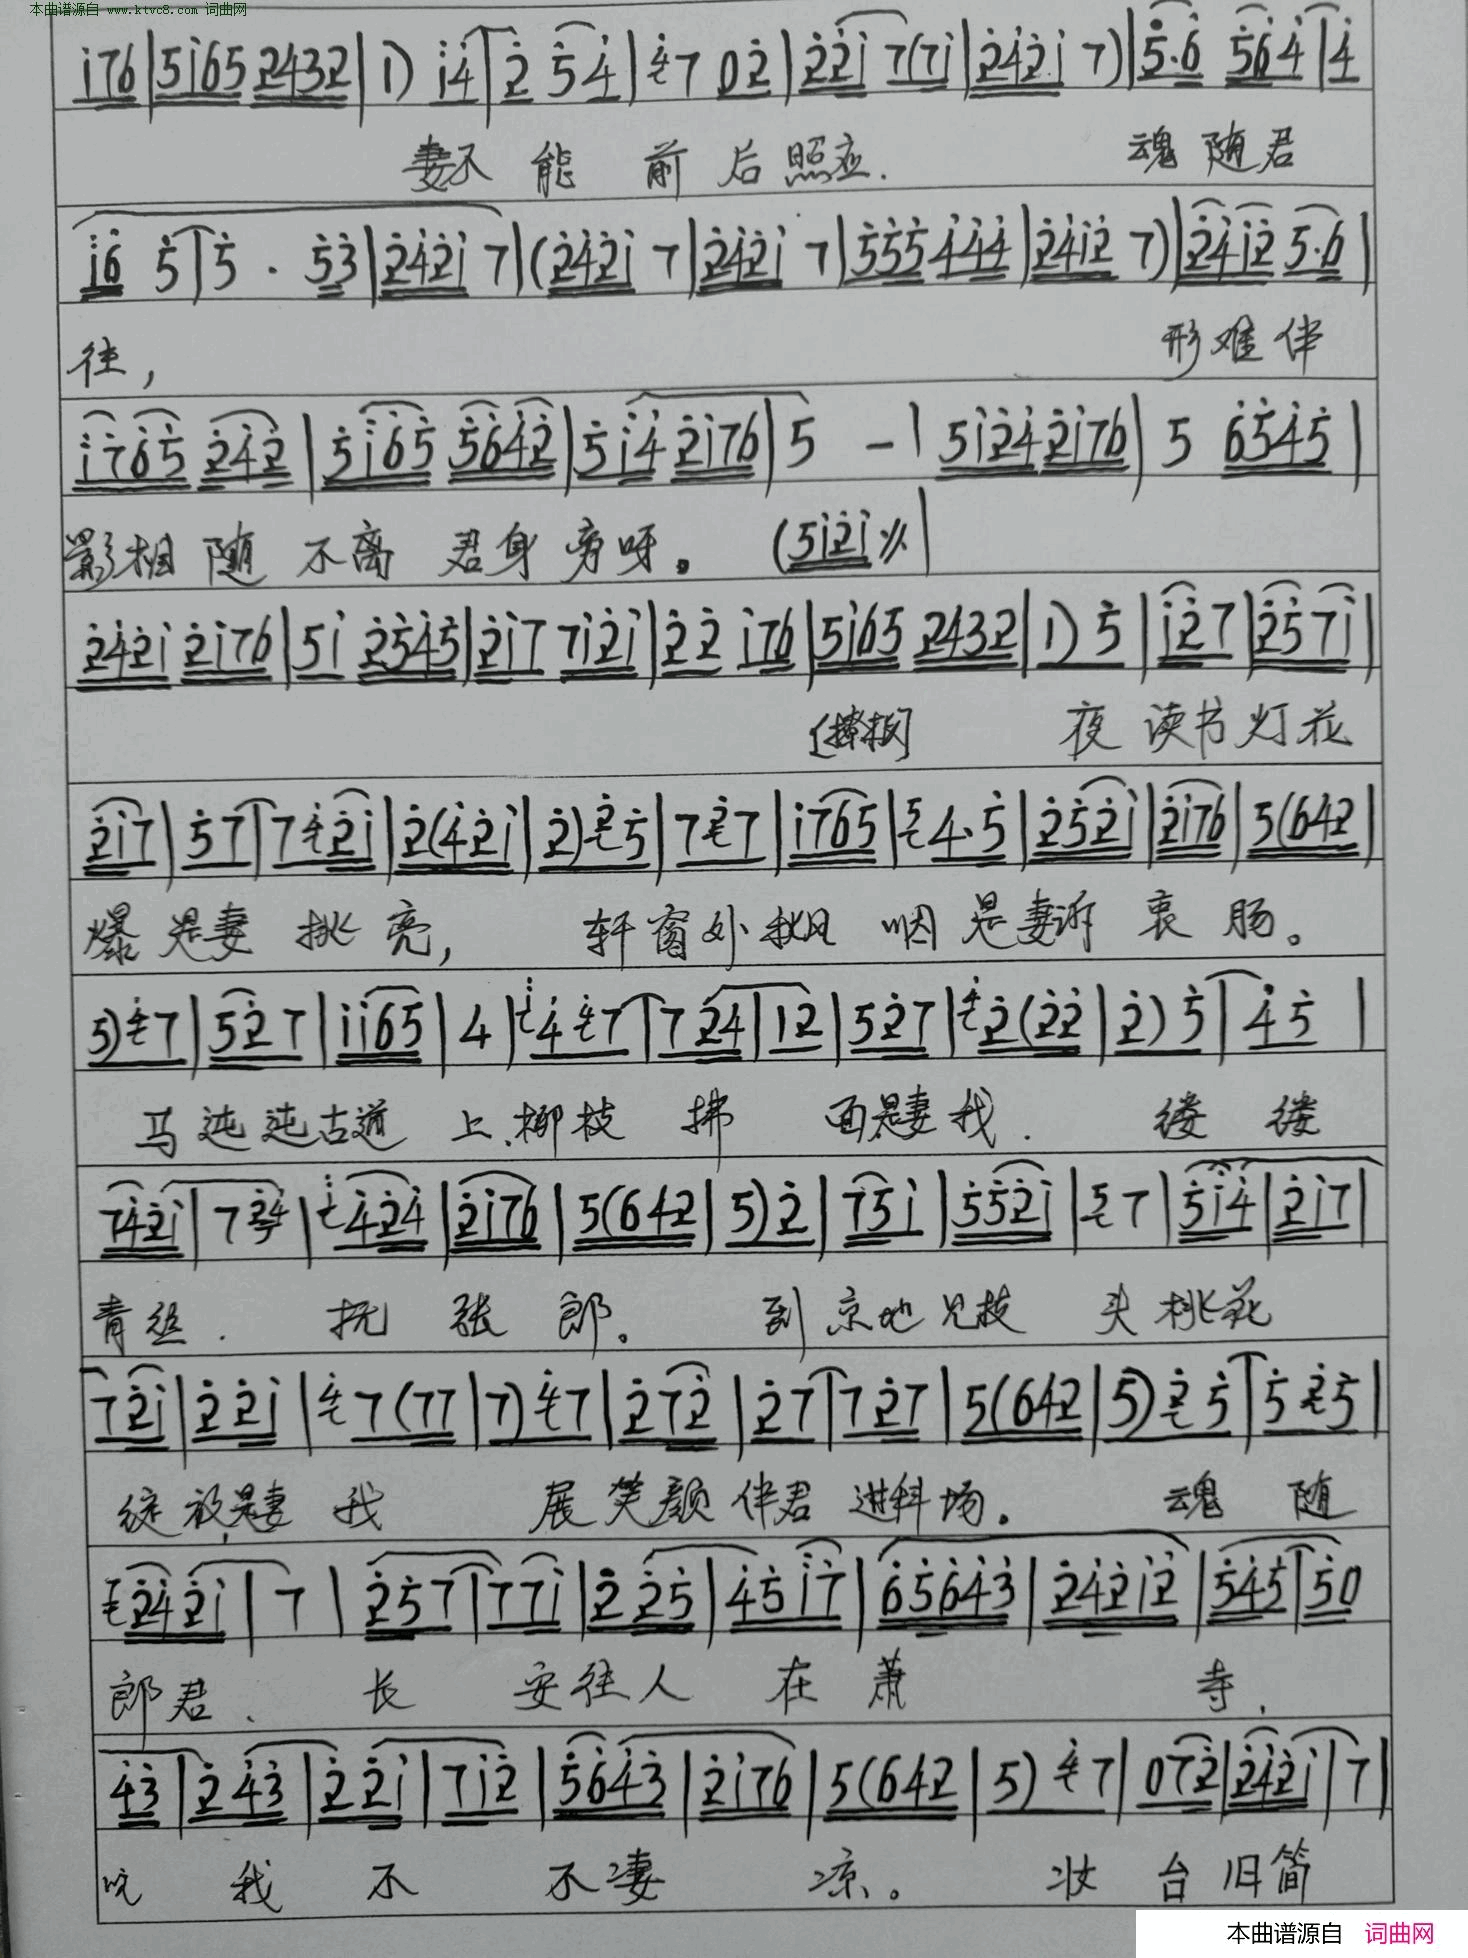 本曲谱源自 www.ktvc8.com 词曲网
i76|5i65 2432|1) i4|2 54|47 02|22i 7(7i|242i 7)|5·6 564|4
妻不能前后照应. 魂随君
i6 5|5 · 53|242i 7|(242i 7|242i 7|555444|24i2 7)|24i2 5·6|
往, 形难伴
i765 242|5i65 5642|5i4 2i76|5 -|5i24 2i76|5 6545|
影相随不离君身旁呀。(5i2i⁒|
242i 2i76|5i 2545|2i7 7i2i|22 i76|5i65 2432|1) 5|i27|257i|
夜读书灯花
2i7|57|7 42i|2(42i|2)25|727|i765|54·5|252i|2i76|5(642|
爆是妻挑亮, 轩窗外秋风咽是妻诉衷肠。
5)47|527|ii65|4|i4 47|7 24|12|527|42(22|2)5|45|
马迍迍古道上.柳枝拂面是妻我. 缕缕
742i|7 24|i424|2i76|5(642|5)2|75i|552i|57|5i4|2i7|
青丝. 抚张郎。到京地见枝头桃花
72i|22i|47(77|7)47|272|27|727|5(642|5)25|525|
绽放是妻我展笑颜伴君进科场。魂随
7242i|7|257|77i|225|45i7|65643|242i2|545|50
郎君. 长安往人在萧寺.
43|243|22i|7i2|5643|2i76|5(642|5)47|072|242i|7|
吭我不不凄凉。妆台旧简
本曲谱源自 词曲网